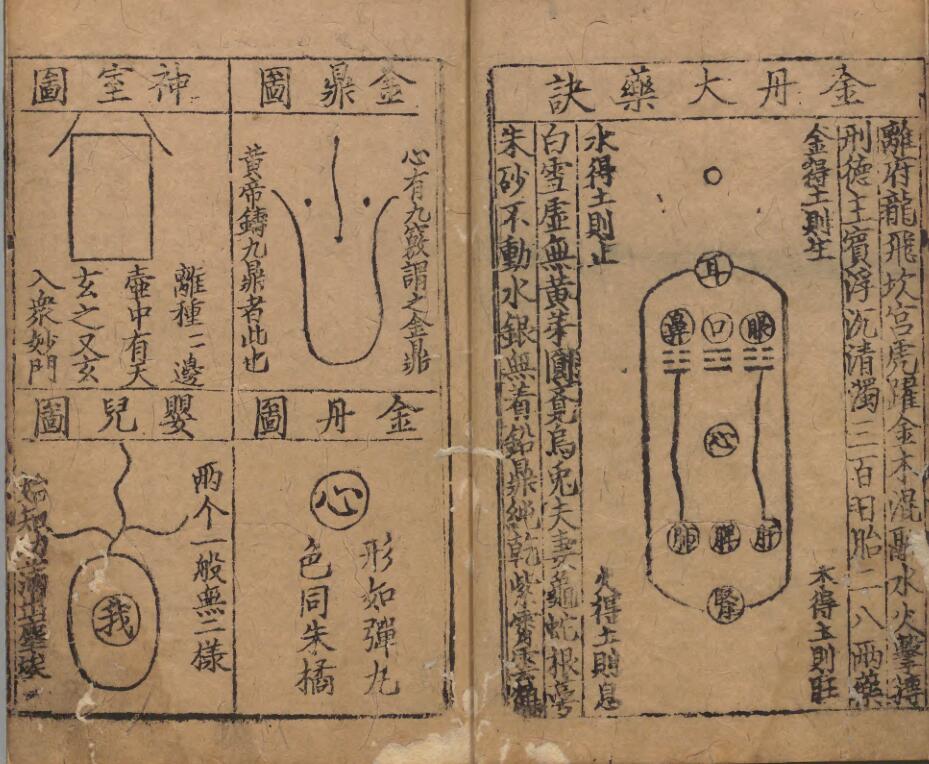 金丹大藥訣
離府龍飛坎宮虎躍金木混融水火擊搏
刑德主賓浮沉清濁三百日胎二八兩藥
金得土則生
木得土則旺
耳
眼
口
鼻
心
肝
脾
肺
腎
水得土則止
火得土則息
白雪虛無黃芽圓覺烏兔夫妻龜蛇根
朱砂不動水銀無着鉛鼎純乾紫霄雲
金鼎圖
心有九竅謂之金鼎
黃帝鑄九鼎者此也
神室圖
離種二邊
壺中有天
玄之又玄
入衆妙門
金丹圖
心
形如彈丸
色同朱橘
嬰兒圖
兩个一般無二樣
我